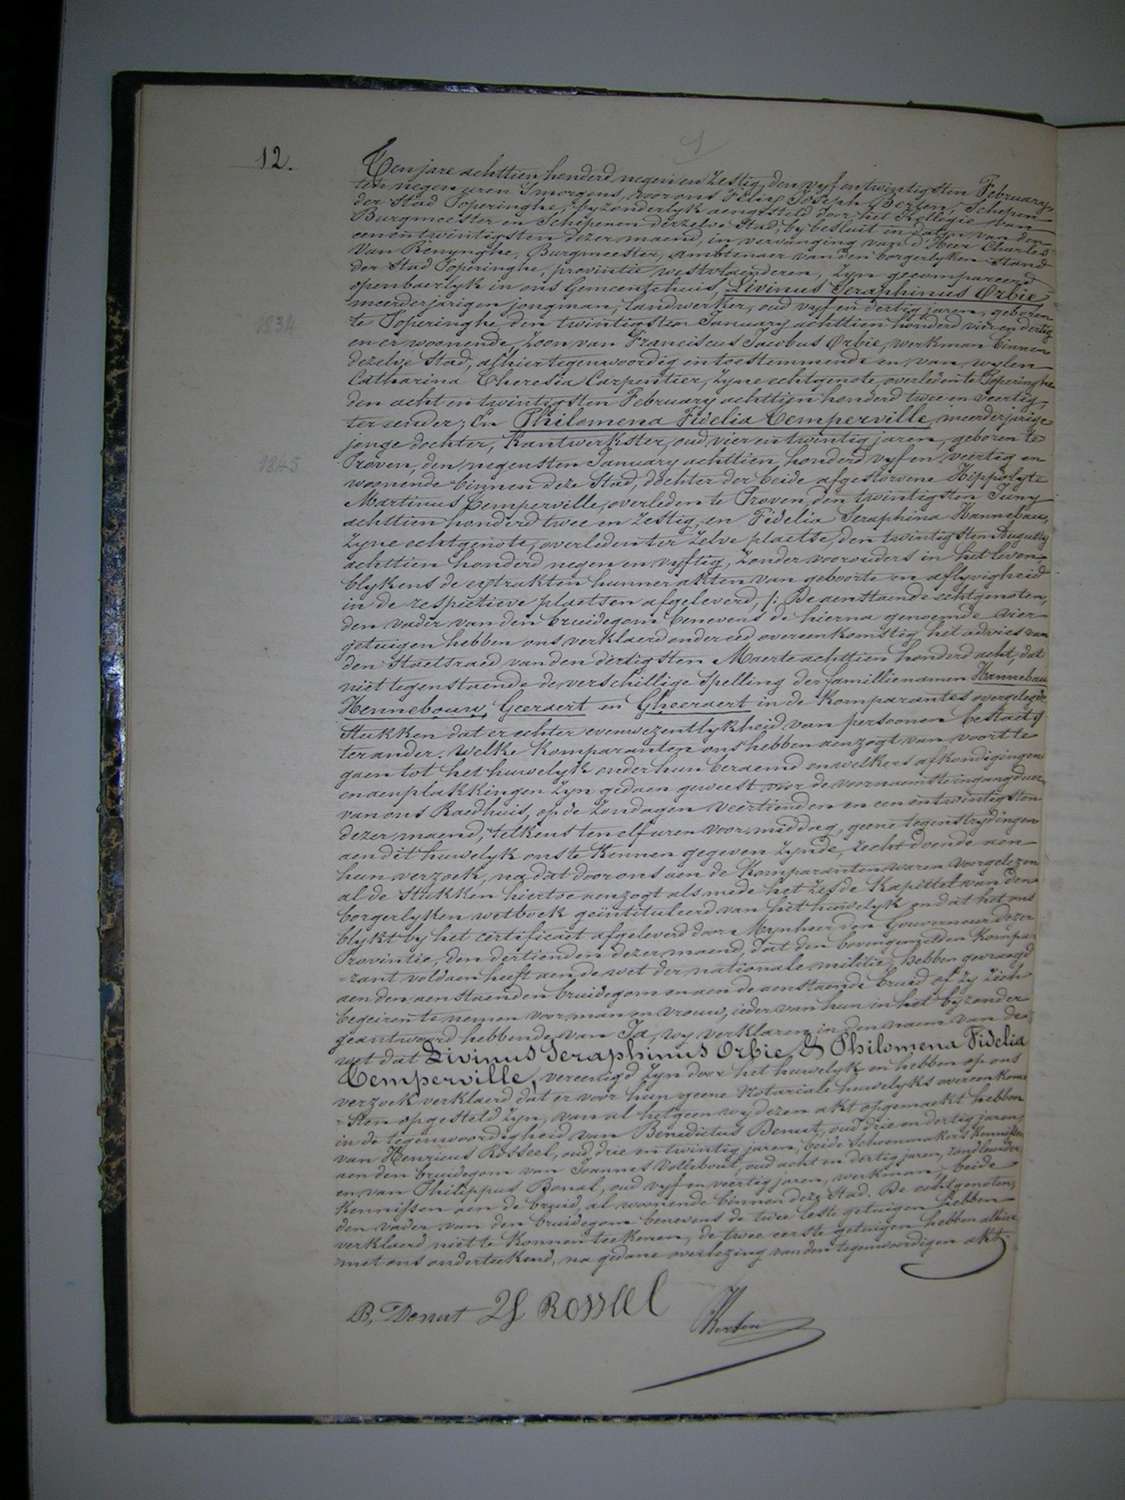 12.
Ten jare achttien honderd negen en Zestig, den vyf en twintigsten February
ten negen uren 's morgens, voor ons Felix Joseph Berten, Schepen
der Stad Poperinghe, byzonderlyk aengesteld door het Kollegie van
Burgmeester en Schepenen derzelve Stad, by besluit in daten van den
een en twintigsten dezer maend, in vervanging van d'Heer Charles
Van Renynghe, Burgmeester, Ambtenaer van den borgerlyken Stand
der Stad Poperinghe, provintie Westvlaenderen, Zyn gecompareerd
openbaerlyk in ons Gemeentehuis, Livinus Seraphinus Orbie
meerderjarigen jongman, landwerker, oud vyf en dertig jaren, geboren
te Poperinghe den twintigsten January achttien honderd vier en dertig
1834
en er woonende, Zoon van Franciscus Jacobus Orbie, werkman binnen
dezelve Stad, alhier tegenwoordig en toestemmende en van wylen
Catharina Theresia Carpentier, Zyne echtgenote, overleden te Poperinghe
den acht en twintigsten February achttien honderd twee en veertig,
ter eender; En Philomena Fidelia Temperville, meerderjarige
jonge dochter, Kantwerkster, oud vier en twintig jaren, geboren te
1845
Proven, den negensten January achttien honderd vyf en veertig en
woonende binnen deze Stad, dochter der beide afgestorvene Hippolyte
Martinus Temperville, overleden te Proven, den twintigsten Juny
achttien honderd twee en Zestig, en Fidelia Seraphina Hannebau,
Zyne echtgenote, overleden ter Zelve plaetse, den twintigsten Augusty
achttien honderd negen en vyftig, Zonder voorouders in het leven,
blykens de extrakten hunner akten van geboorte en aflyvigheid
in de respectieve plaetsen afgeleverd, /: De aenstaende echtgenoten,
den vader van den bruidegom benevens de hierna genoemde vier
getuigen hebben ons verklaerd onder eed overeenkomstig het advies van
den Staetsraed van den dertigsten Maerte achttien honderd acht, dat
niet tegenstaende de verschillige Spelling der famillienamen Hannebau
Hennebouw, Geeraert en Gheeraert in de Komparantes overgelegde
Stukken dat er echter evenwezentlykheid van persoonen bestaet :/
ter ander. Welke Komparanten ons hebben aenzogt van voort te
gaen tot het huwelyk onder hun beraemd en welkers afkondigingen
en aenplakkingen Zyn gedaen geweest voor de voornaemste ingangdeur
van ons Raedhuis, op de Zondagen veertienden en een en twintigsten
dezer maend, telkens ten elf uren voormiddag, geene tegenstrydingen
aen dit huwelyk ons te Kennen gegeven Zynde, recht doende aen
hun verzoek, na dat door ons aen de Komparanten waren voorgelezen
al de Stukken hiertoe aenzogt als mede het Zesde Kapittel van den
borgerlyken wetboek geïntituleerd van het huwelyk en dat het ons
blykt by het certificaet afgeleverd door Mynheer den Gouverneur dezer
Provintie, den dertienden dezer maend, dat den bovengemelden Kompa-
-rant voldaen heeft aen de wet der nationale militie, hebben gevraegd
aen den aenstaenden bruidegom en aen de aenstaende bruid of Zy Zich
begeiren te nemen voor man en vrouw, ieder van hun in het byzonder
geantwoord hebbende van Ja, wy verklaren in den naem van de
wet dat Livinus Seraphinus Orbie & Philomena Fidelia
Temperville, vereenigd Zyn door het huwelyk en hebben op ons
verzoek verklaerd dat er voor hun geene Notariale huwelyks overeenkom-
-sten opgesteld Zyn, van al hetgeen wy dezen akt opgemaekt hebben
in de tegenwoordigheid van Benedictus Denut, oud drie en dertig jaren,
van Henricus Rosseel, oud drie en twintig jaren, beide Schoenmakers Kennissen
aen den bruidegom van Joannes Vollebout, oud acht en dertig jaren, Landbouwer
en van Philippus Bonat, oud vyf en veertig jaren, werkman beide
Kennissen aen de bruid, al woonende binnen deze Stad. De echtgenoten,
den vader van den bruidegom benevens de twee leste getuigen hebben
verklaerd niet te Konnen teekenen, de twee eerste getuigen hebben alhier
met ons onderteekend, na gedane overlezing van den tegenwoordigen akt.
B, Denut H Rosseel Berten